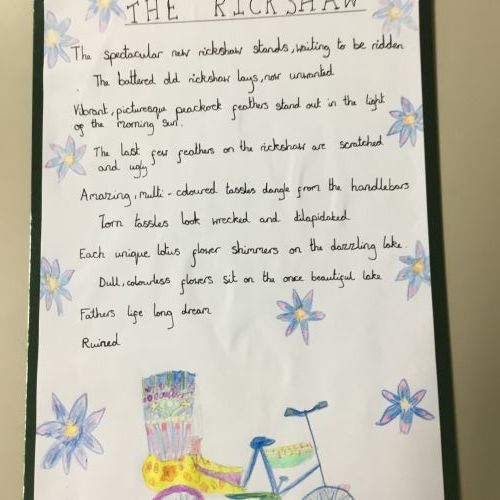 THE RICKSHAW
The spectacular new rickshaw stands, waiting to be ridden
The battered old rickshaw lays, now unwanted
Vibrant, picturesque peackock feathers stand out in the light
of the morning sun.
The last few feathers on the rickshaw are scratched
and ugly
Amazing, multi-coloured tassles dangle from the handlebars
Torn tassles look wrecked and dilapidated
Each unique lotus flower shimmers on the dazzling lake.
Dull, colourless flowers sit on the once beautiful lake
Fathers life long dream
Ruined